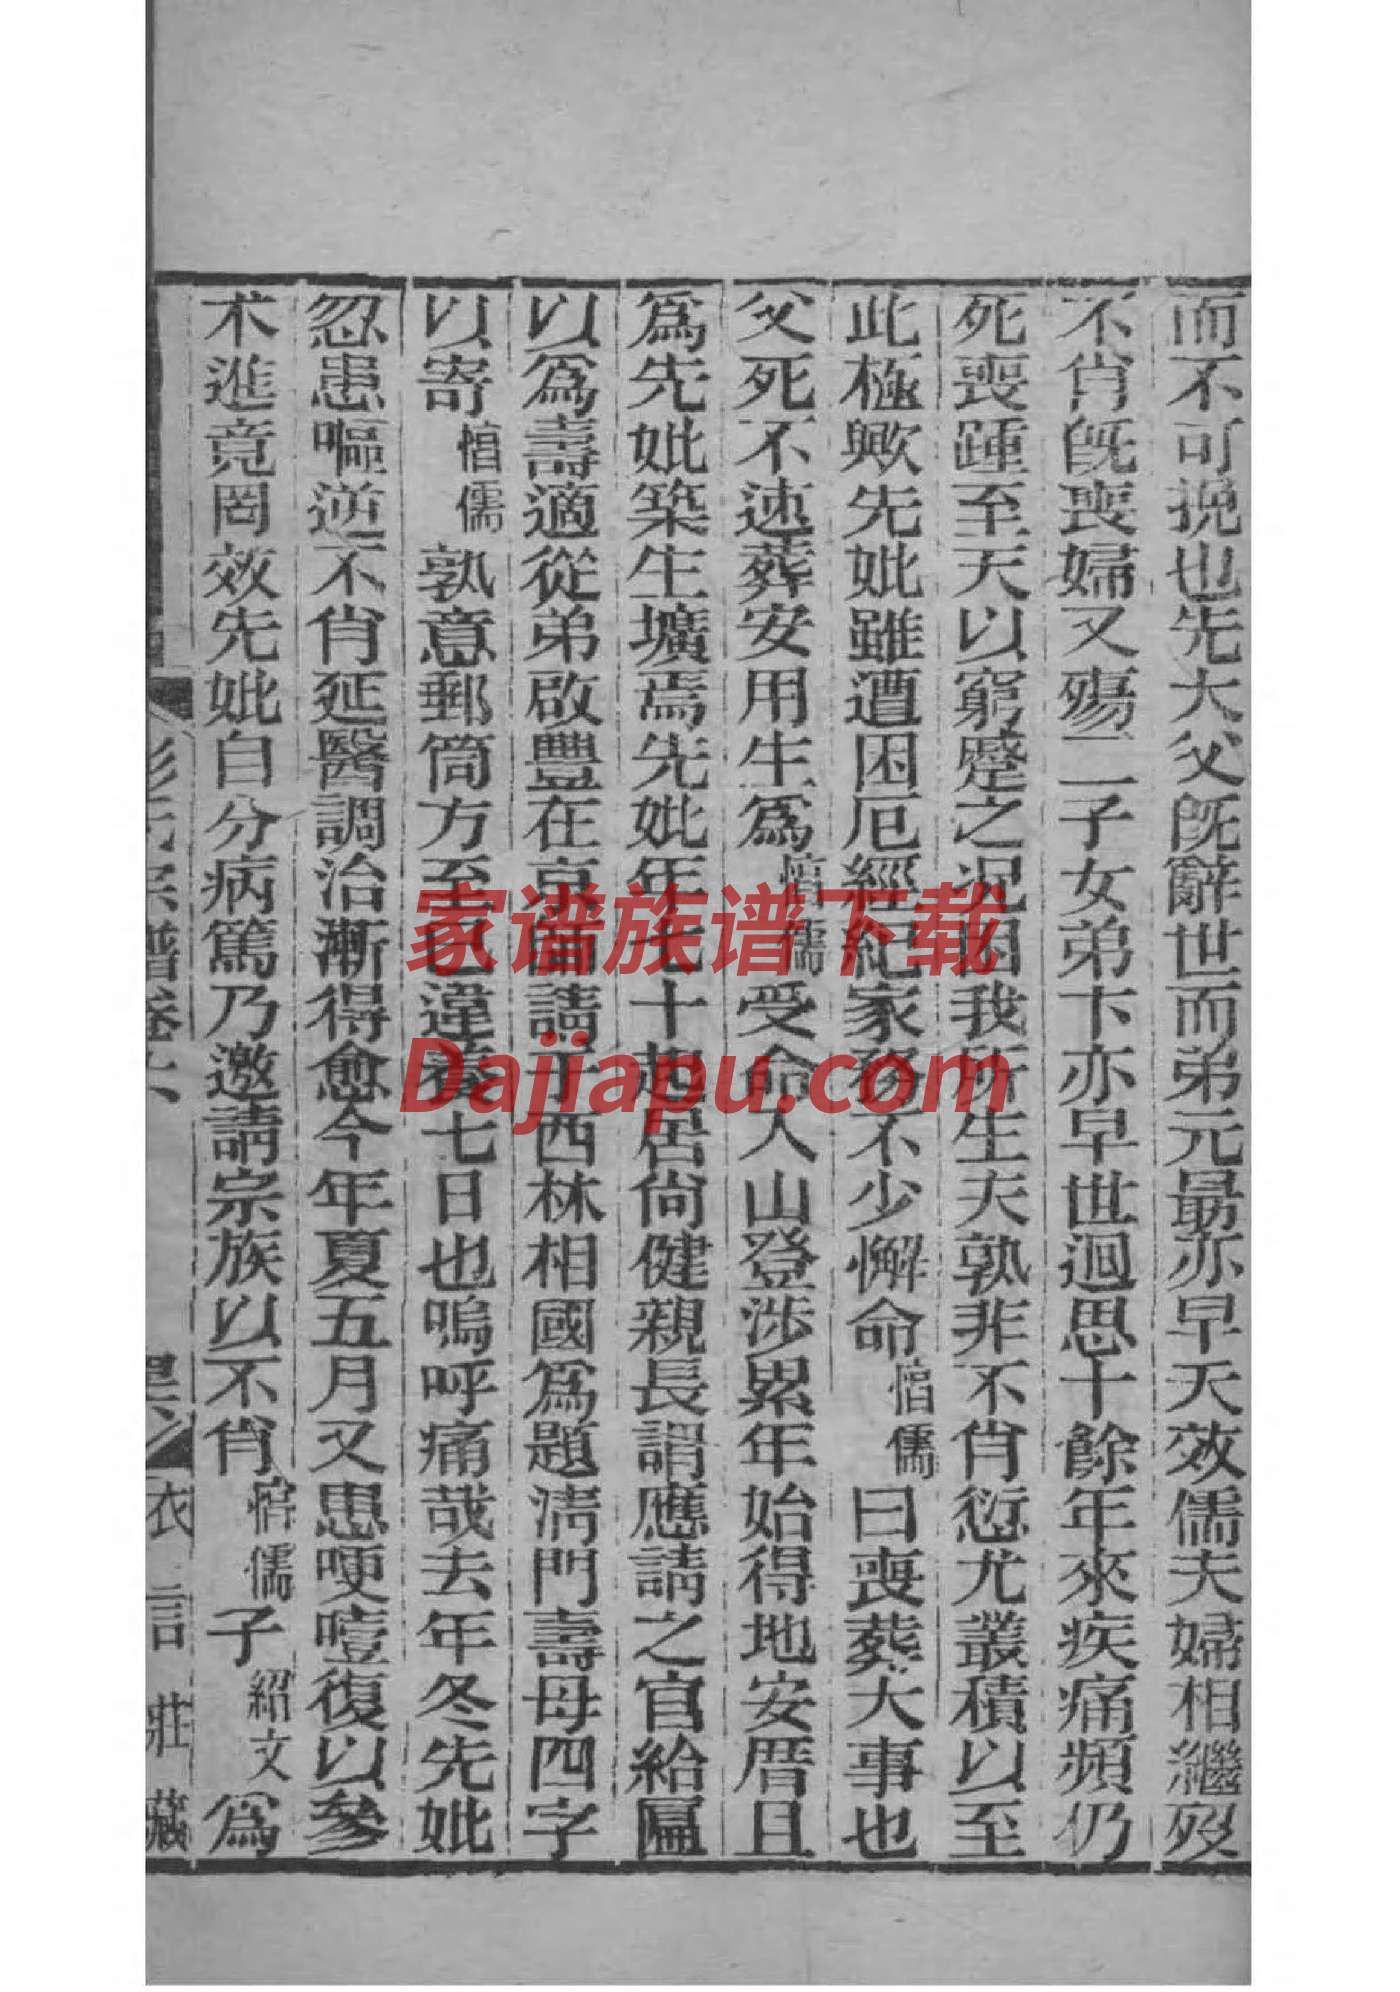 而不可挽也先大父旣辭世而弟元最亦早夭效儒夫婦相繼歿
不肖旣喪婦又殤二子女弟下亦早世迴思十餘年來疾痛頻仍
死喪踵至天以窮蹙之況困我所生夫孰非不肖愆尤叢積以至
此極歟先妣雖遭困厄經紀家務不少懈命愔儒曰喪葬大事也
父死不速葬安用生爲愔儒受命入山登涉累年始得地安厝且
爲先妣築生壙焉先妣年七十起居尙健親長謂應請之官給匾
以爲壽適從弟啟豐在京師請于西林相國爲題淸門壽母四字
以寄愔儒孰意郵筒方至已違養七日也嗚呼痛哉去年冬先妣
忽患嘔逆不肖延醫調治漸得愈今年夏五月又患哽噎復以參
朮進竟罔效先妣自分病篤乃邀請宗族以不肖愔儒子紹文爲
彭氏宗譜卷六
衣言莊藏
家谱族谱下载
Dajiapu.com